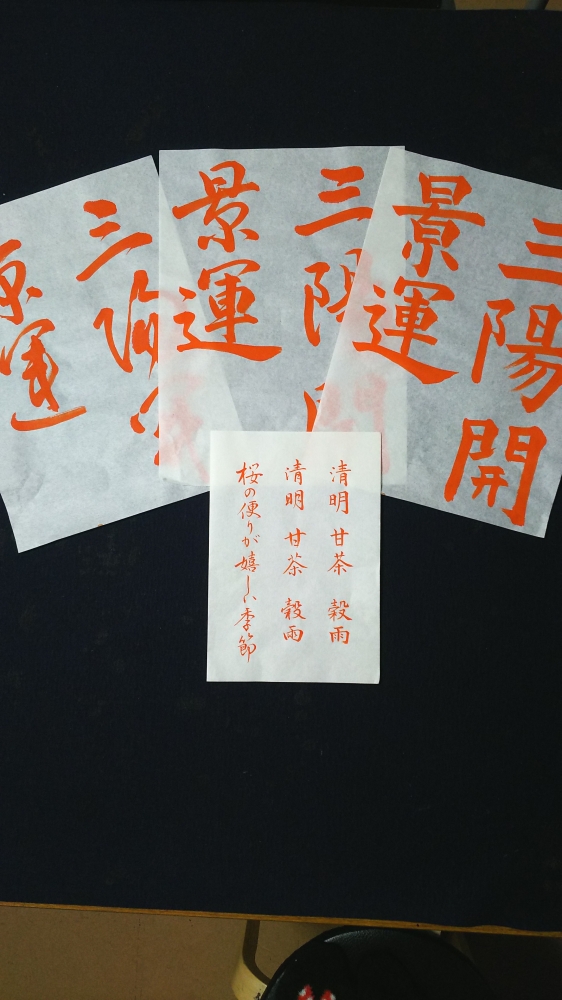 三陽開
景運
三陽
景運
三陽
景運
清明 甘茶 穀雨
清明 甘茶 穀雨
桜の便りが嬉しい季節